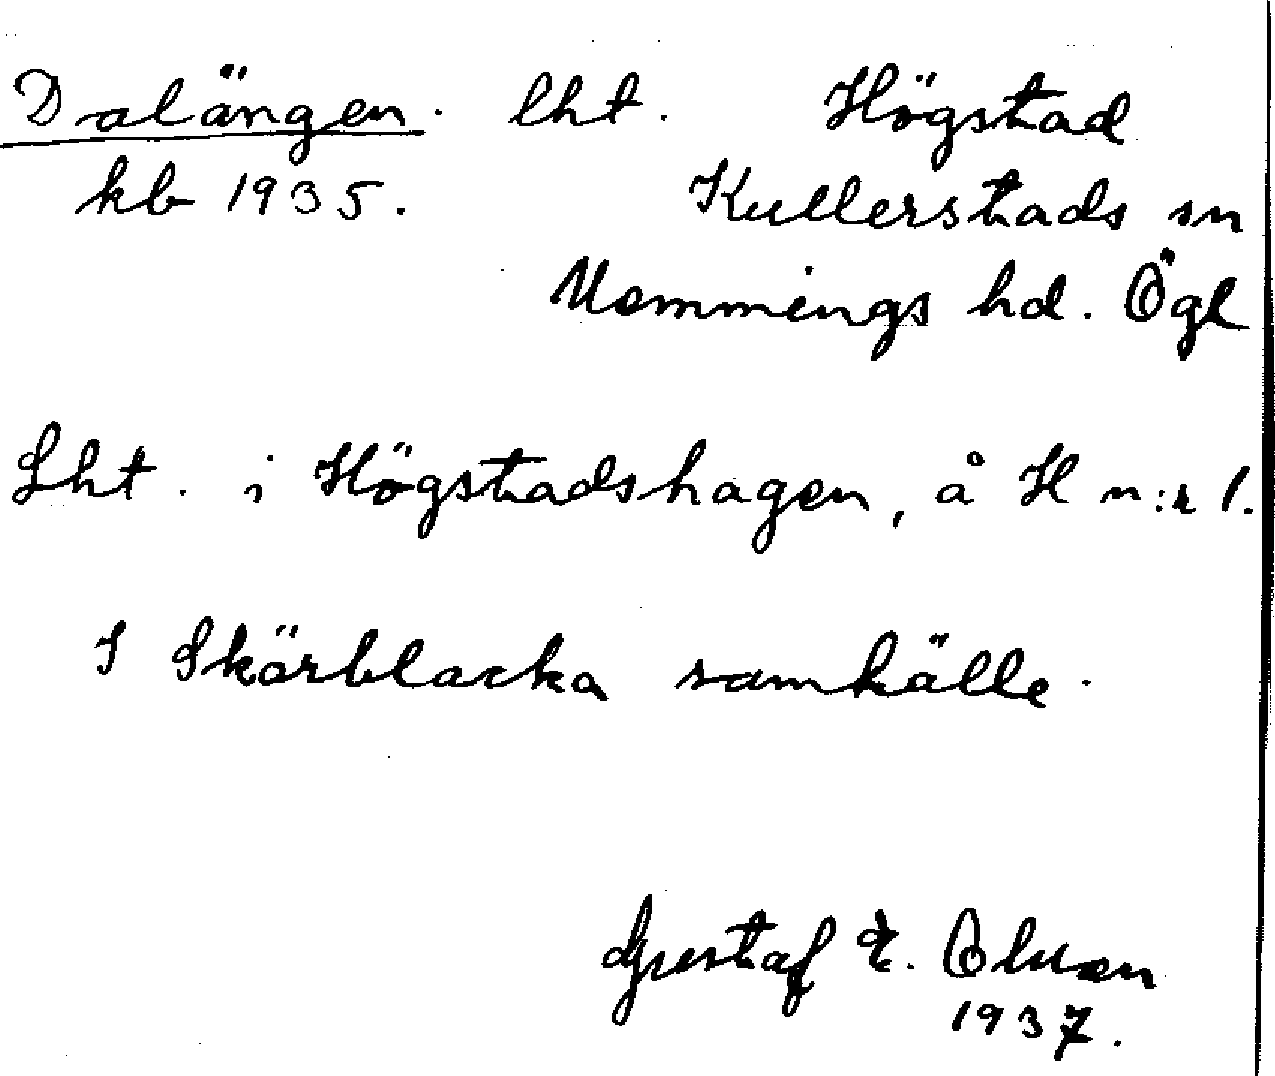 Dalängen. lht. Högstad
kb 1935. Kullerstads sn
Memmings hd. Ögl
Lht. i Högstadshagen, å H n:r 1.
I Skärblacka samhälle.
Gustaf E. Olsson
1937.